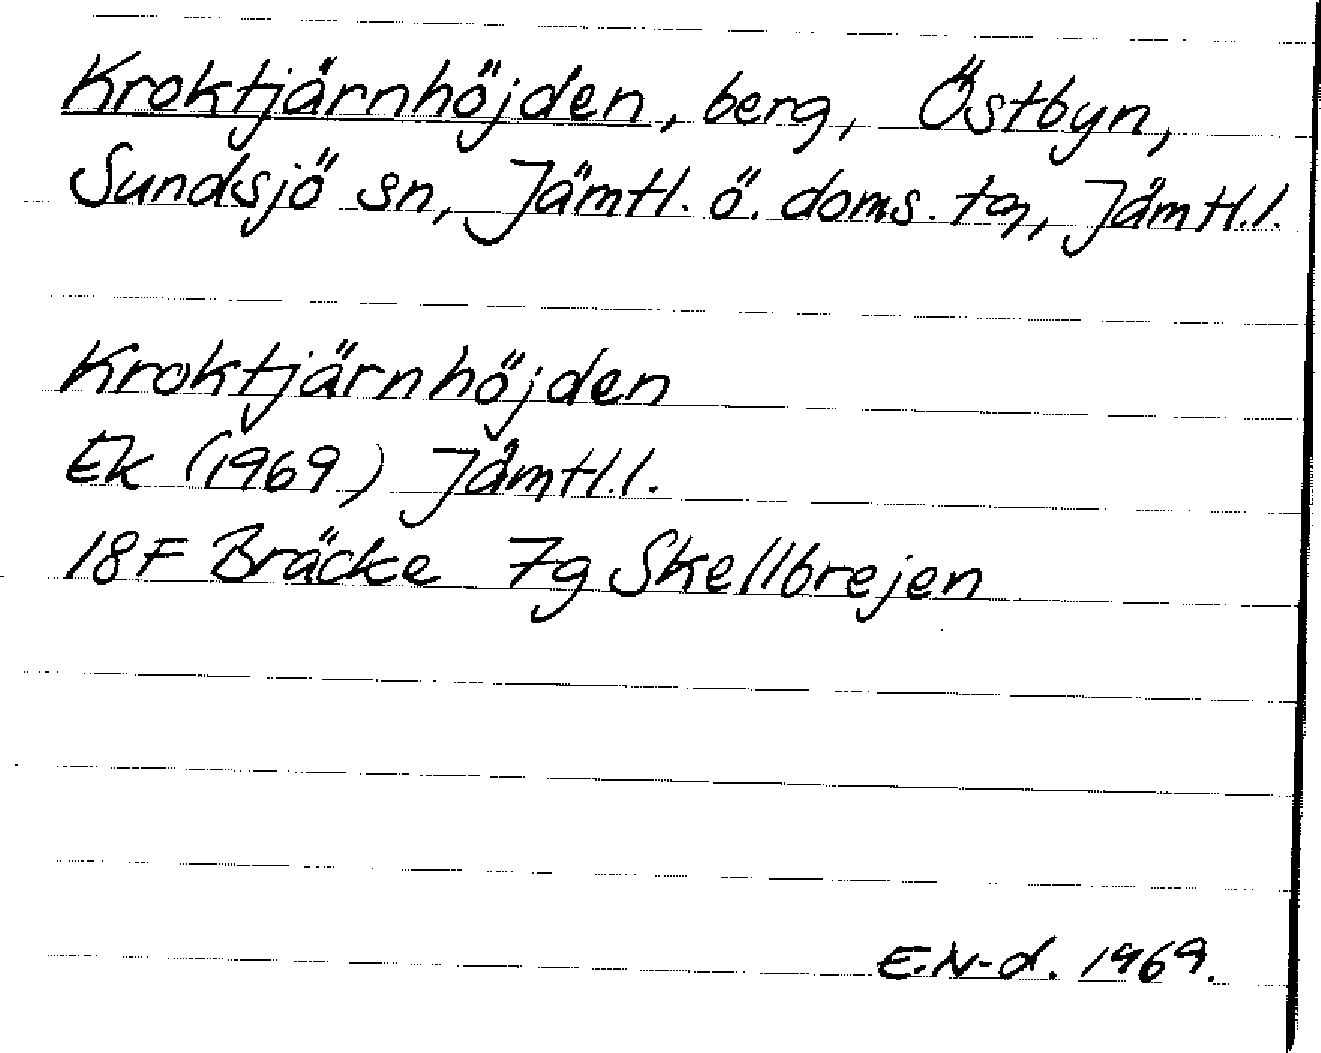 Kroktjärnhöjden, berg, Östbyn,
Sundsjö sn, Jämtl. ö. doms. tg, Jämtl.l.
Kroktjärnhöjden
Ek (1969) Jämtl.l.
18F Bräcke 7g Skellbrejen
E.N-d. 1969.